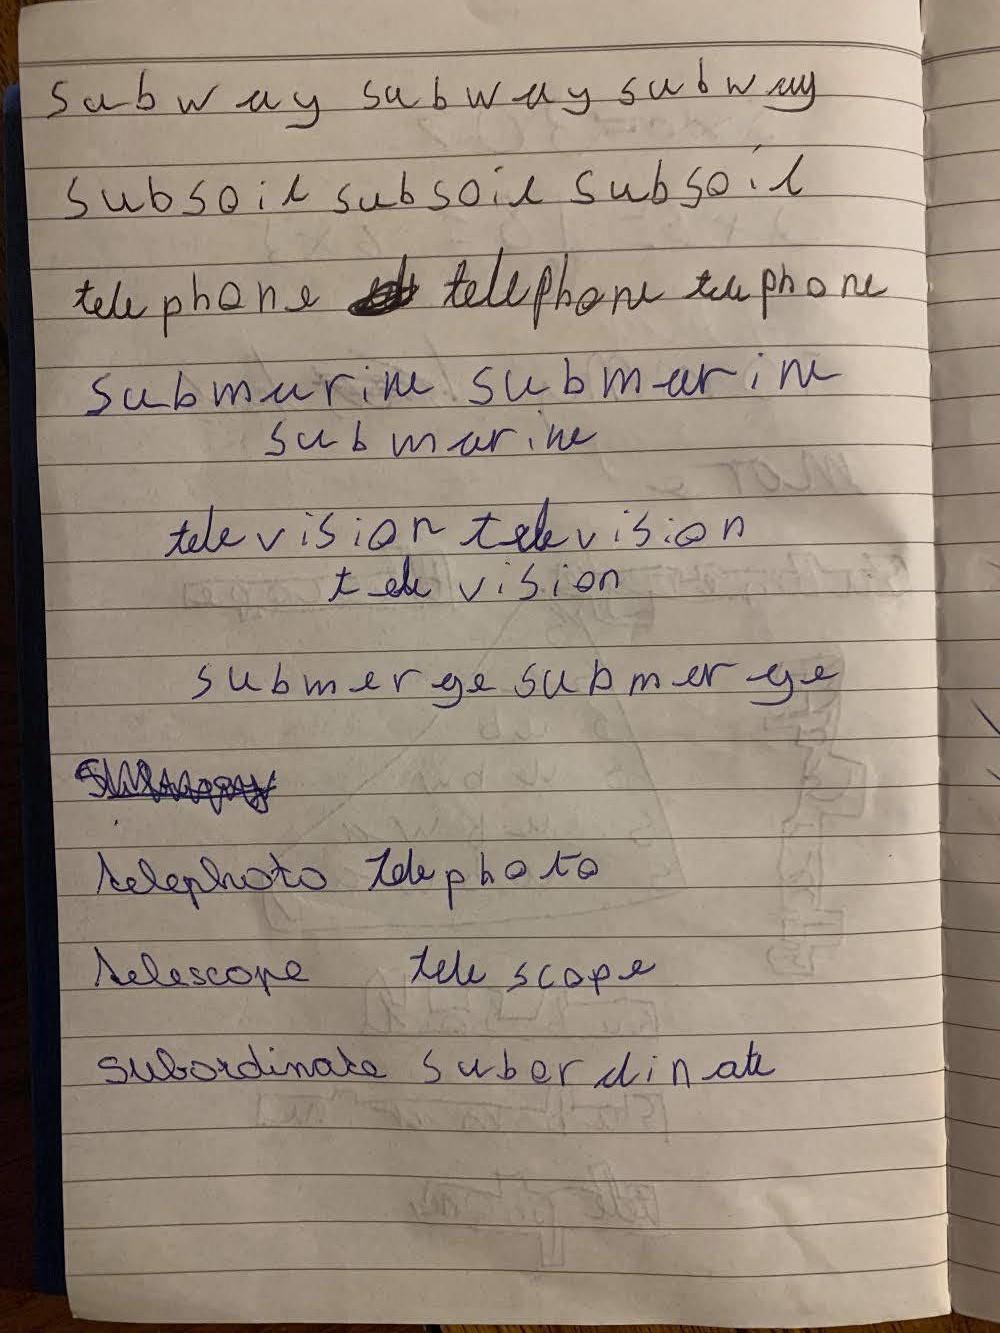 subway subway subway
subsoil subsoil subsoil
telephone telephone telephone
submarine submarine
submarine
television television
television
submerge submerge
telephoto telephoto
telescope telescope
subordinate subordinate